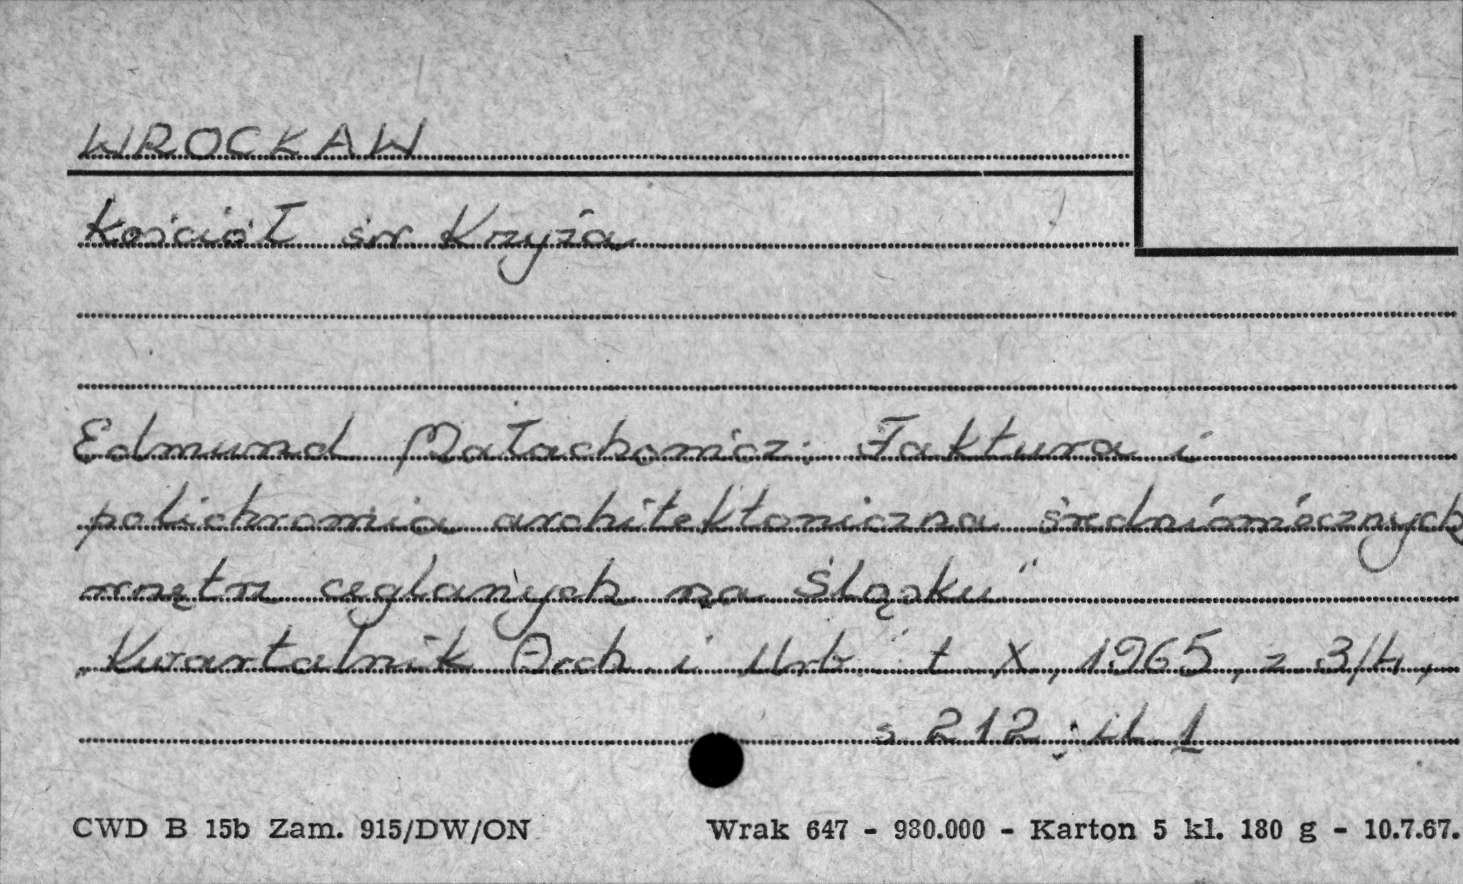 WROCŁAW
Kościół św Krzyża
Edmund Małachowicz: Faktura i
polichromia architektoniczna średniowiecznych
wnętrz ceglanych na Śląsku"
„Kwartalnik Arch i Urb." t X, 1965, z 3/4,
s 212; il 1
CWD B 15b Zam. 915/DW/ON Wrak 647 - 980.000 - Karton 5 kl. 180 g - 10.7.67.